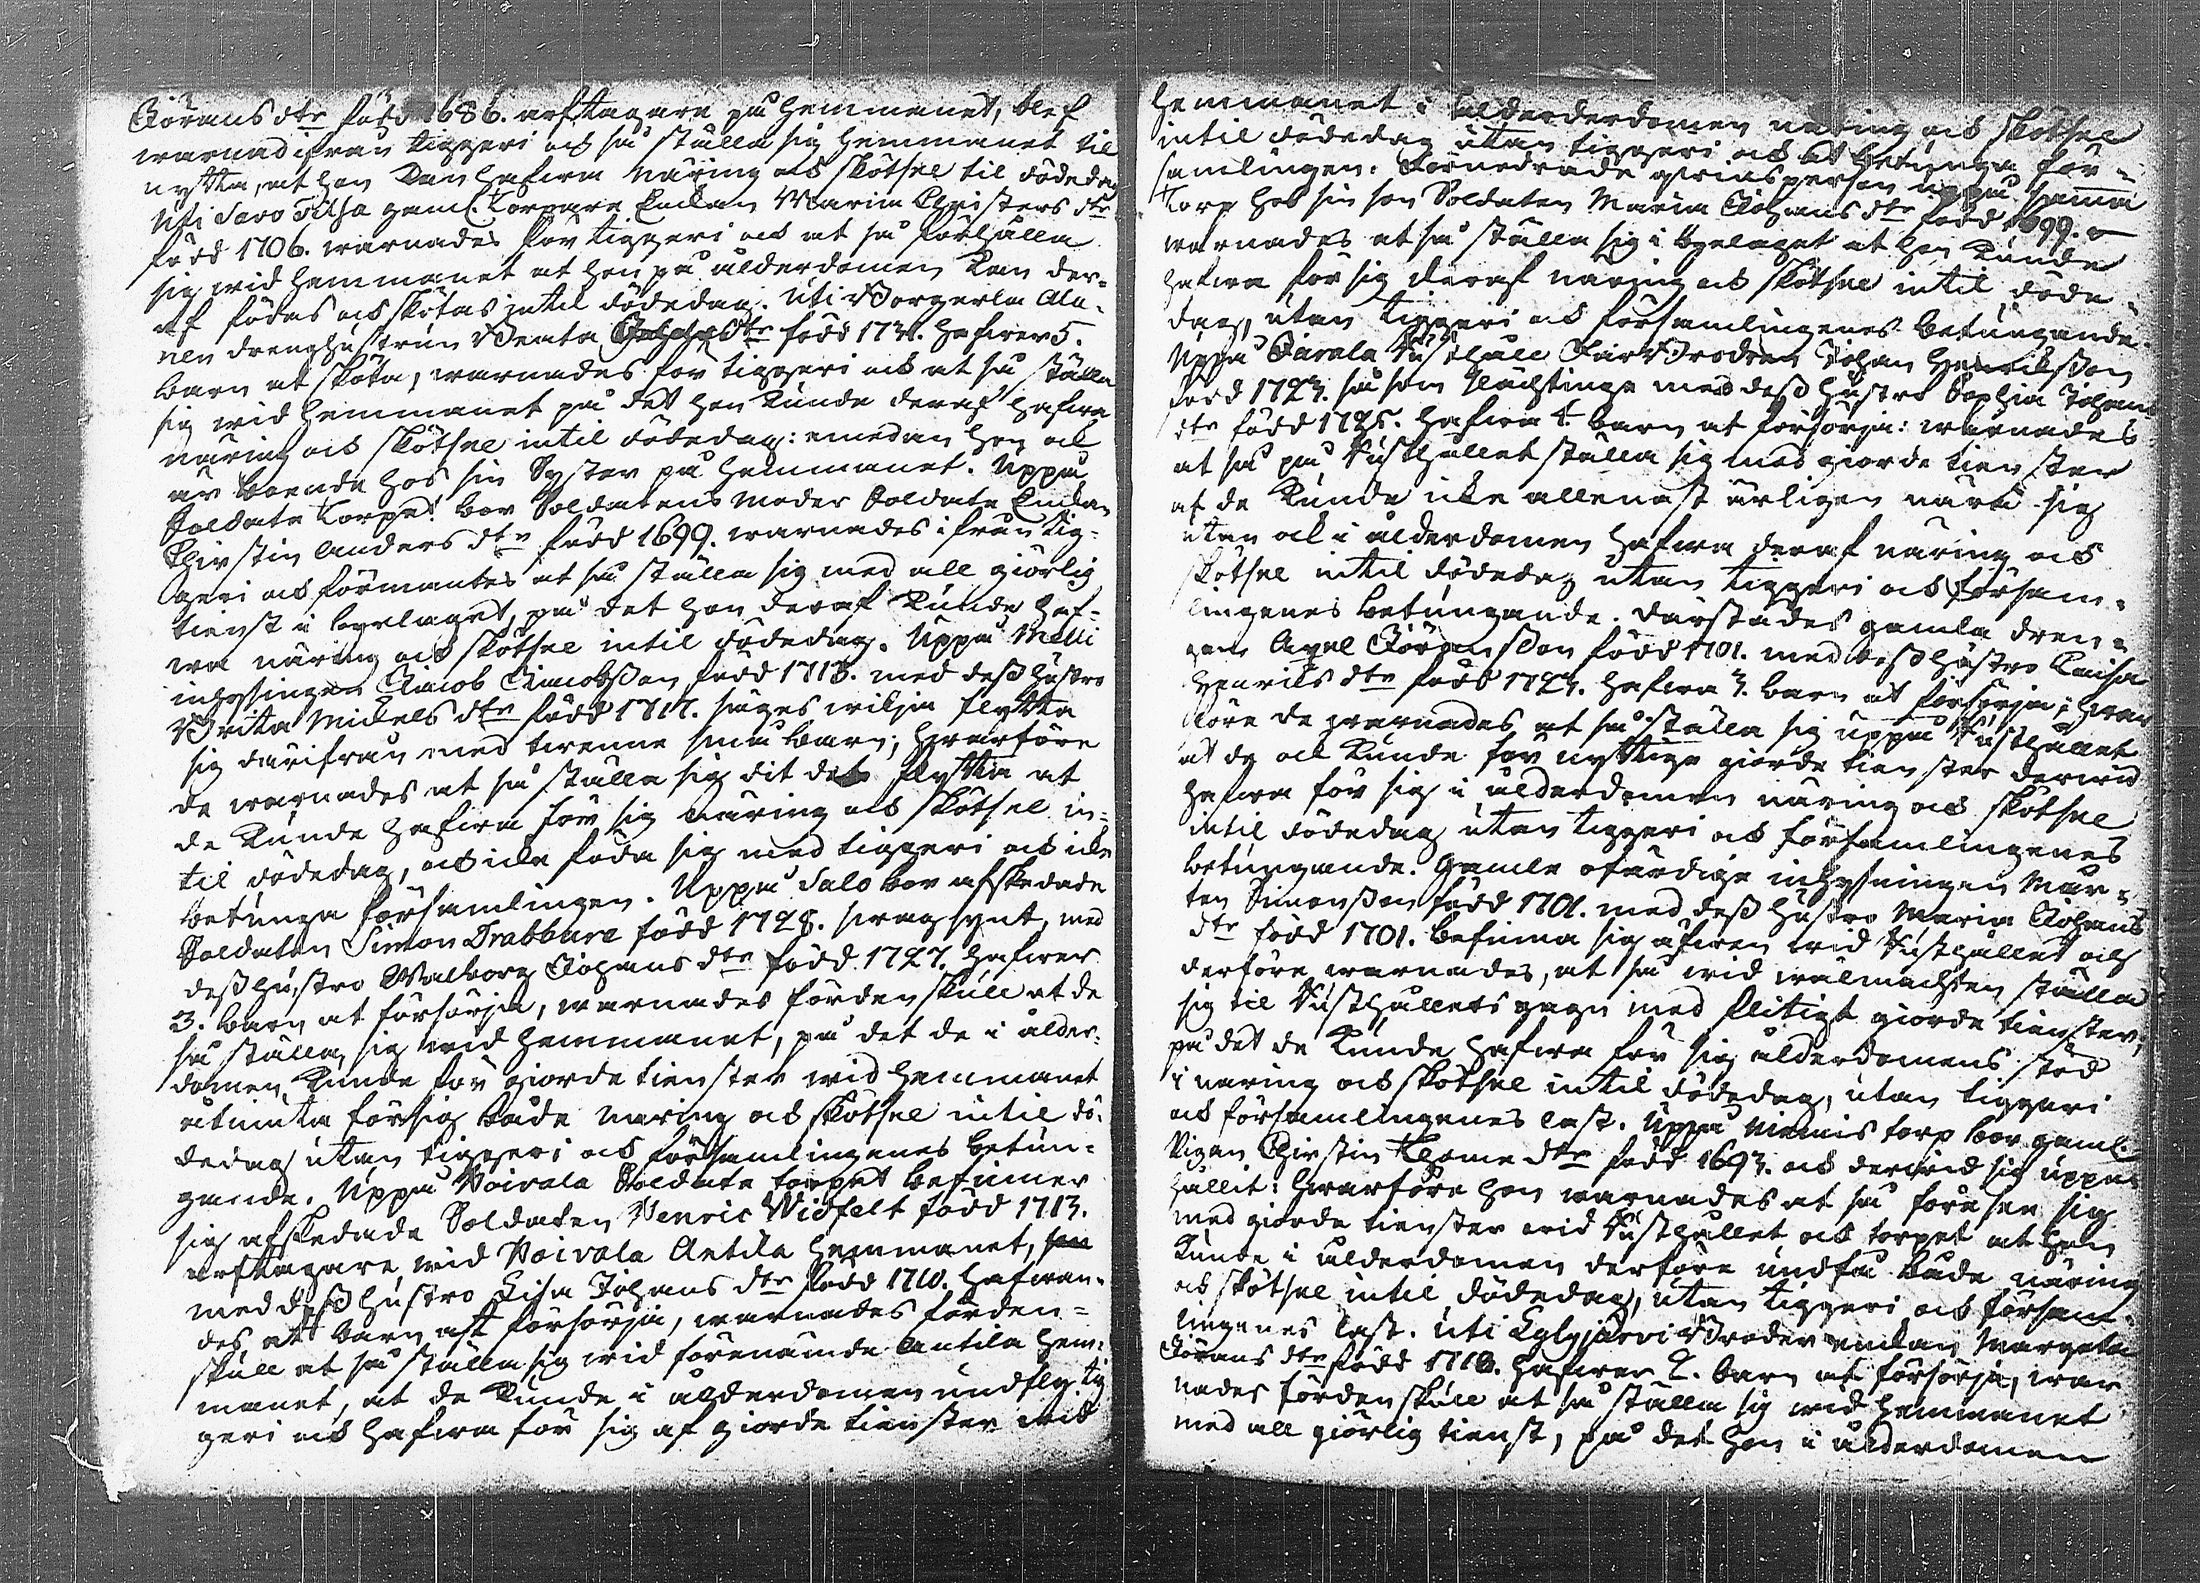 Görans dtr född 1686. arftagare på hemmanet, blef
warnad ifrån tiggeri och så ställa sig hemmanet til
nytta, at hon kan hafwa näring och skötsel til dödedag
Uti Savo Pilsa gaml. Torpare Enkan Maria Christers dtr
född 1706. warnades för tiggeri och at så förhålla
sig wid hemmanet at hon på ålderdomen kan der-
af födas och skötas intil dödedag. Uti Borgerla Ala-
nen drenghustrun Beata dtr född 173. hafwer 5.
barn at sköta, warnades för tiggeri och at så ställa
sig wid hemmanet på det hon kunde deraf hafwa
näring och skötsel intil dödedag: emedan hon ock
är boende hos sin Syster på hemmanet. Uppå
Soldate torpet bor Soldatens moder Soldate Enkan
Christin Anders dtr född 1699. warnades ifrån tig-
geri och förmantes at så ställa sig med all giörlig
tienst i bolaget, på det hon deraf kunde haf-
wa näring och skötsel intil dödedag. Uppå Melli
inhysingen Jacob Jacobsson född 1713. med dess hustro
Brita Mickels dtr född 1717. säges wilja flytta
sig därifrån med trenne små barn; hwarföre
de warnades at så ställa sig dit de flytta at
de kunde hafwa för sig näring och skötsel in-
til dödedag, och icke föda sig med tiggeri och icke
betunga församlingen. Uppå Salo bor afskedade
Soldaten Simon Drabbare född 1728. swagsynt, med
dess hustro Walborg Johans dtr född 1727. hafwer
3. barn at försörja, warnades fördenskull at de
så ställa sig wid hemmanet, på det de i ålder-
domen kunde för giorde tienster wid hemmanet
åtniuta för sig både näring och skötsel intil dö-
dedag utan tiggeri och församlingenes betun-
gande. Uppå Voivala Soldate torpet befinner
sig afskedade Soldaten Henric Widfelt född 1713.
arftagare wid Voivala Antila hemmanet,
med dess hustro Lisa Johans dtr född 1710. hafwan-
des ett barn att försörja, warnades förden-
skull at så ställa sig wid förenämde Antila hem-
manet, at de kunde i ålderdomen undfly tig
geri och hafwa för sig af giorde tienster wid
hemmanet i ålderdomen näring och skötsel
intil dödedag utan tiggeri och at betunga för-
samlingen. Förnedrade person uppå samma
Torp hos sin son Soldaten Maria Johans dtr född 1699.
warnades at så ställa sig i bolaget at hon kunde
hafwa för sig deraf näring och skötsel intil döde-
dag, utan tiggeri och församlingenes betungande.
Uppå Järala Rusthåll Brodren Johan Henriksson
född 1723. så som slächtinge med dess hustro Sophia Johans
dtr född 1725. hafwa 4. barn at försörja: warnades
at så på Rusthållet ställa sig med giorde tienster
at de kunde icke allenast ärligen nära sig
utan ock i ålderdomen hafwa deraf näring och
skötsel intil dödedag utan tiggeri och försam-
lingenes betungande. Därstädes gamla dren-
gen Axel Göransson född 1701. med dess hustro Caisa
Henriks dtr född 1723. hafwa 3. barn at försörja; hwar
före de warnades at så ställa sig uppå Rusthållet
at de ock kunde för nyttige giorde tienster derwid
hafwa för sig i ålderdomen näring och skötsel
intil dödedag utan tiggeri och församlingenes
betungande. Gamle ofärdige inhysningen Mår-
ten Simonsson född 1701. med dess hustro Maria Johans
dtr född 1701. befinna sig äfwen wid Rusthållet och
derföre warnades, at så wid wälmachten ställa
sig til Rusthållets gagn med flitigt giorde tienster,
på det de kunde hafwa för sig ålderdomens stöd
i näring och skötsel intil dödedag, utan tiggeri
och församlingenes last. Uppå Niemis torp bor gaml.
Pigan Christin Thoma dtr född 1693. och derwid sig uppe
hållit: hwarföre hon warnades at så förese sig
med giorde tienster wid Rusthållet och torpet at hon
kunde i ålderdomen derföre undfå både näring
och skötsel intil dödedag, utan tiggeri och försam-
lingenes last. Uti Kylyjärvi Broder enkan Margeta
Görans dtr född 1713. hafwer 2. barn at försörja, war
nades fördenskull at så ställa sig wid hemmanet
med all giörlig tienst, på det hon i ålderdomen